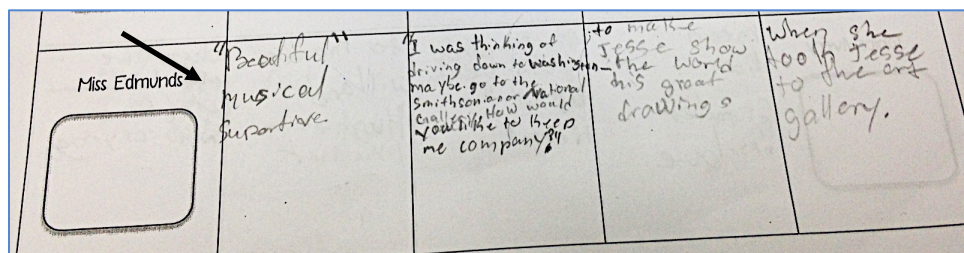 Miss Edmunds
"Beatiful"
musical
Suportive
"I was thinking of
driving down to Washington
maybe go to the
Smithsonian or National
Gallery. How would
you like to keep
me company?"
to make
Jesse show
the world
his great
drawings
when she
took Jesse
to the art
gallery.